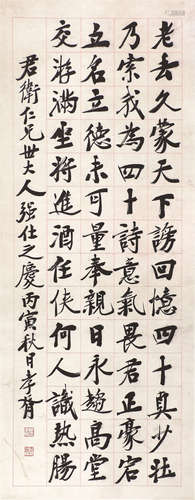 老去久蒙天下謗回憶四十真少壯
乃索我為四十詩意氣畏君正豪宕
立名立德未可量奉親日永趨高堂
交游滿坐將進酒任俠何人識熱腸
君衛仁兄世大人强仕之慶丙寅秋日孝胥